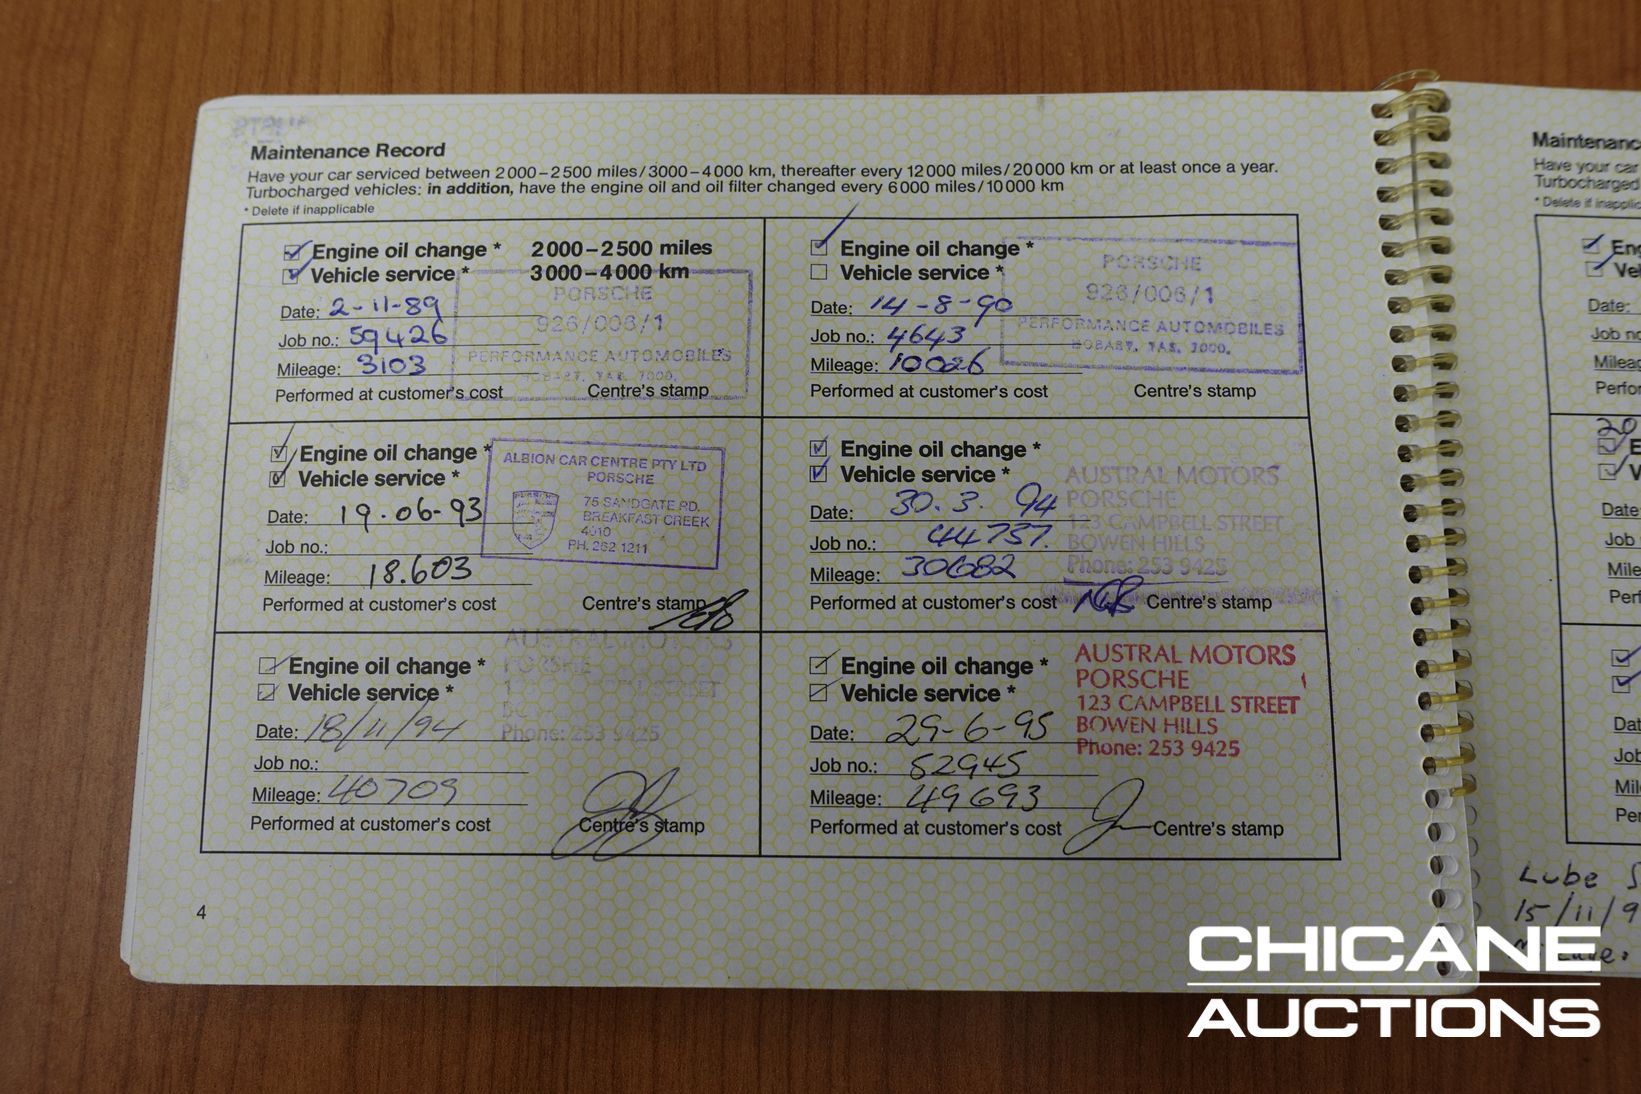 Maintenance Record
Have your car serviced between 2000–2500 miles/3000–4000 km, thereafter every 12000 miles/20000 km or at least once a year.
Turbocharged vehicles: in addition, have the engine oil and oil filter changed every 6000 miles/10000 km
* Delete if inapplicable
Engine oil change * 2000–2500 miles
Vehicle service * 3000–4000 km
PORSCHE
926/006/1
PERFORMANCE AUTOMOBILES
HOBART, TAS. 7000.
Date: 2-11-89
Job no.: 59426
Mileage: 3103
Performed at customer's cost Centre's stamp
Engine oil change *
Vehicle service *
PORSCHE
926/006/1
PERFORMANCE AUTOMOBILES
HOBART, TAS. 7000.
Date: 14-8-90
Job no.: 4643
Mileage: 10026
Performed at customer's cost Centre's stamp
Engine oil change *
Vehicle service *
ALBION CAR CENTRE PTY LTD
PORSCHE
75 SANDGATE RD.
BREAKFAST CREEK
4010
PH. 262 1211
Date: 19.06.93
Job no.:
Mileage: 18.603
Performed at customer's cost Centre's stamp
Engine oil change *
Vehicle service *
AUSTRAL MOTORS
PORSCHE
123 CAMPBELL STREET
BOWEN HILLS
Phone: 253 9425
Date: 30.3.94
Job no.: 44737.
Mileage: 30682
Performed at customer's cost Centre's stamp
Engine oil change *
Vehicle service *
AUSTRAL MOTORS
PORSCHE
STREET
Phone: 253 9425
Date: 18/11/94
Job no.:
Mileage: 40709
Performed at customer's cost Centre's stamp
Engine oil change *
Vehicle service *
AUSTRAL MOTORS
PORSCHE
123 CAMPBELL STREET
BOWEN HILLS
Phone: 253 9425
Date: 29-6-95
Job no.: 52945
Mileage: 49693
Performed at customer's cost Centre's stamp
4
Maintenanc
Have your car
Turbocharged
* Delete if inapplic
Date:
Job no
Mileag
Perfor
20
Date
Job
Mile
Perf
Dat
Job
Mil
Pe
Lube S
15/11/9
CHICANE
AUCTIONS